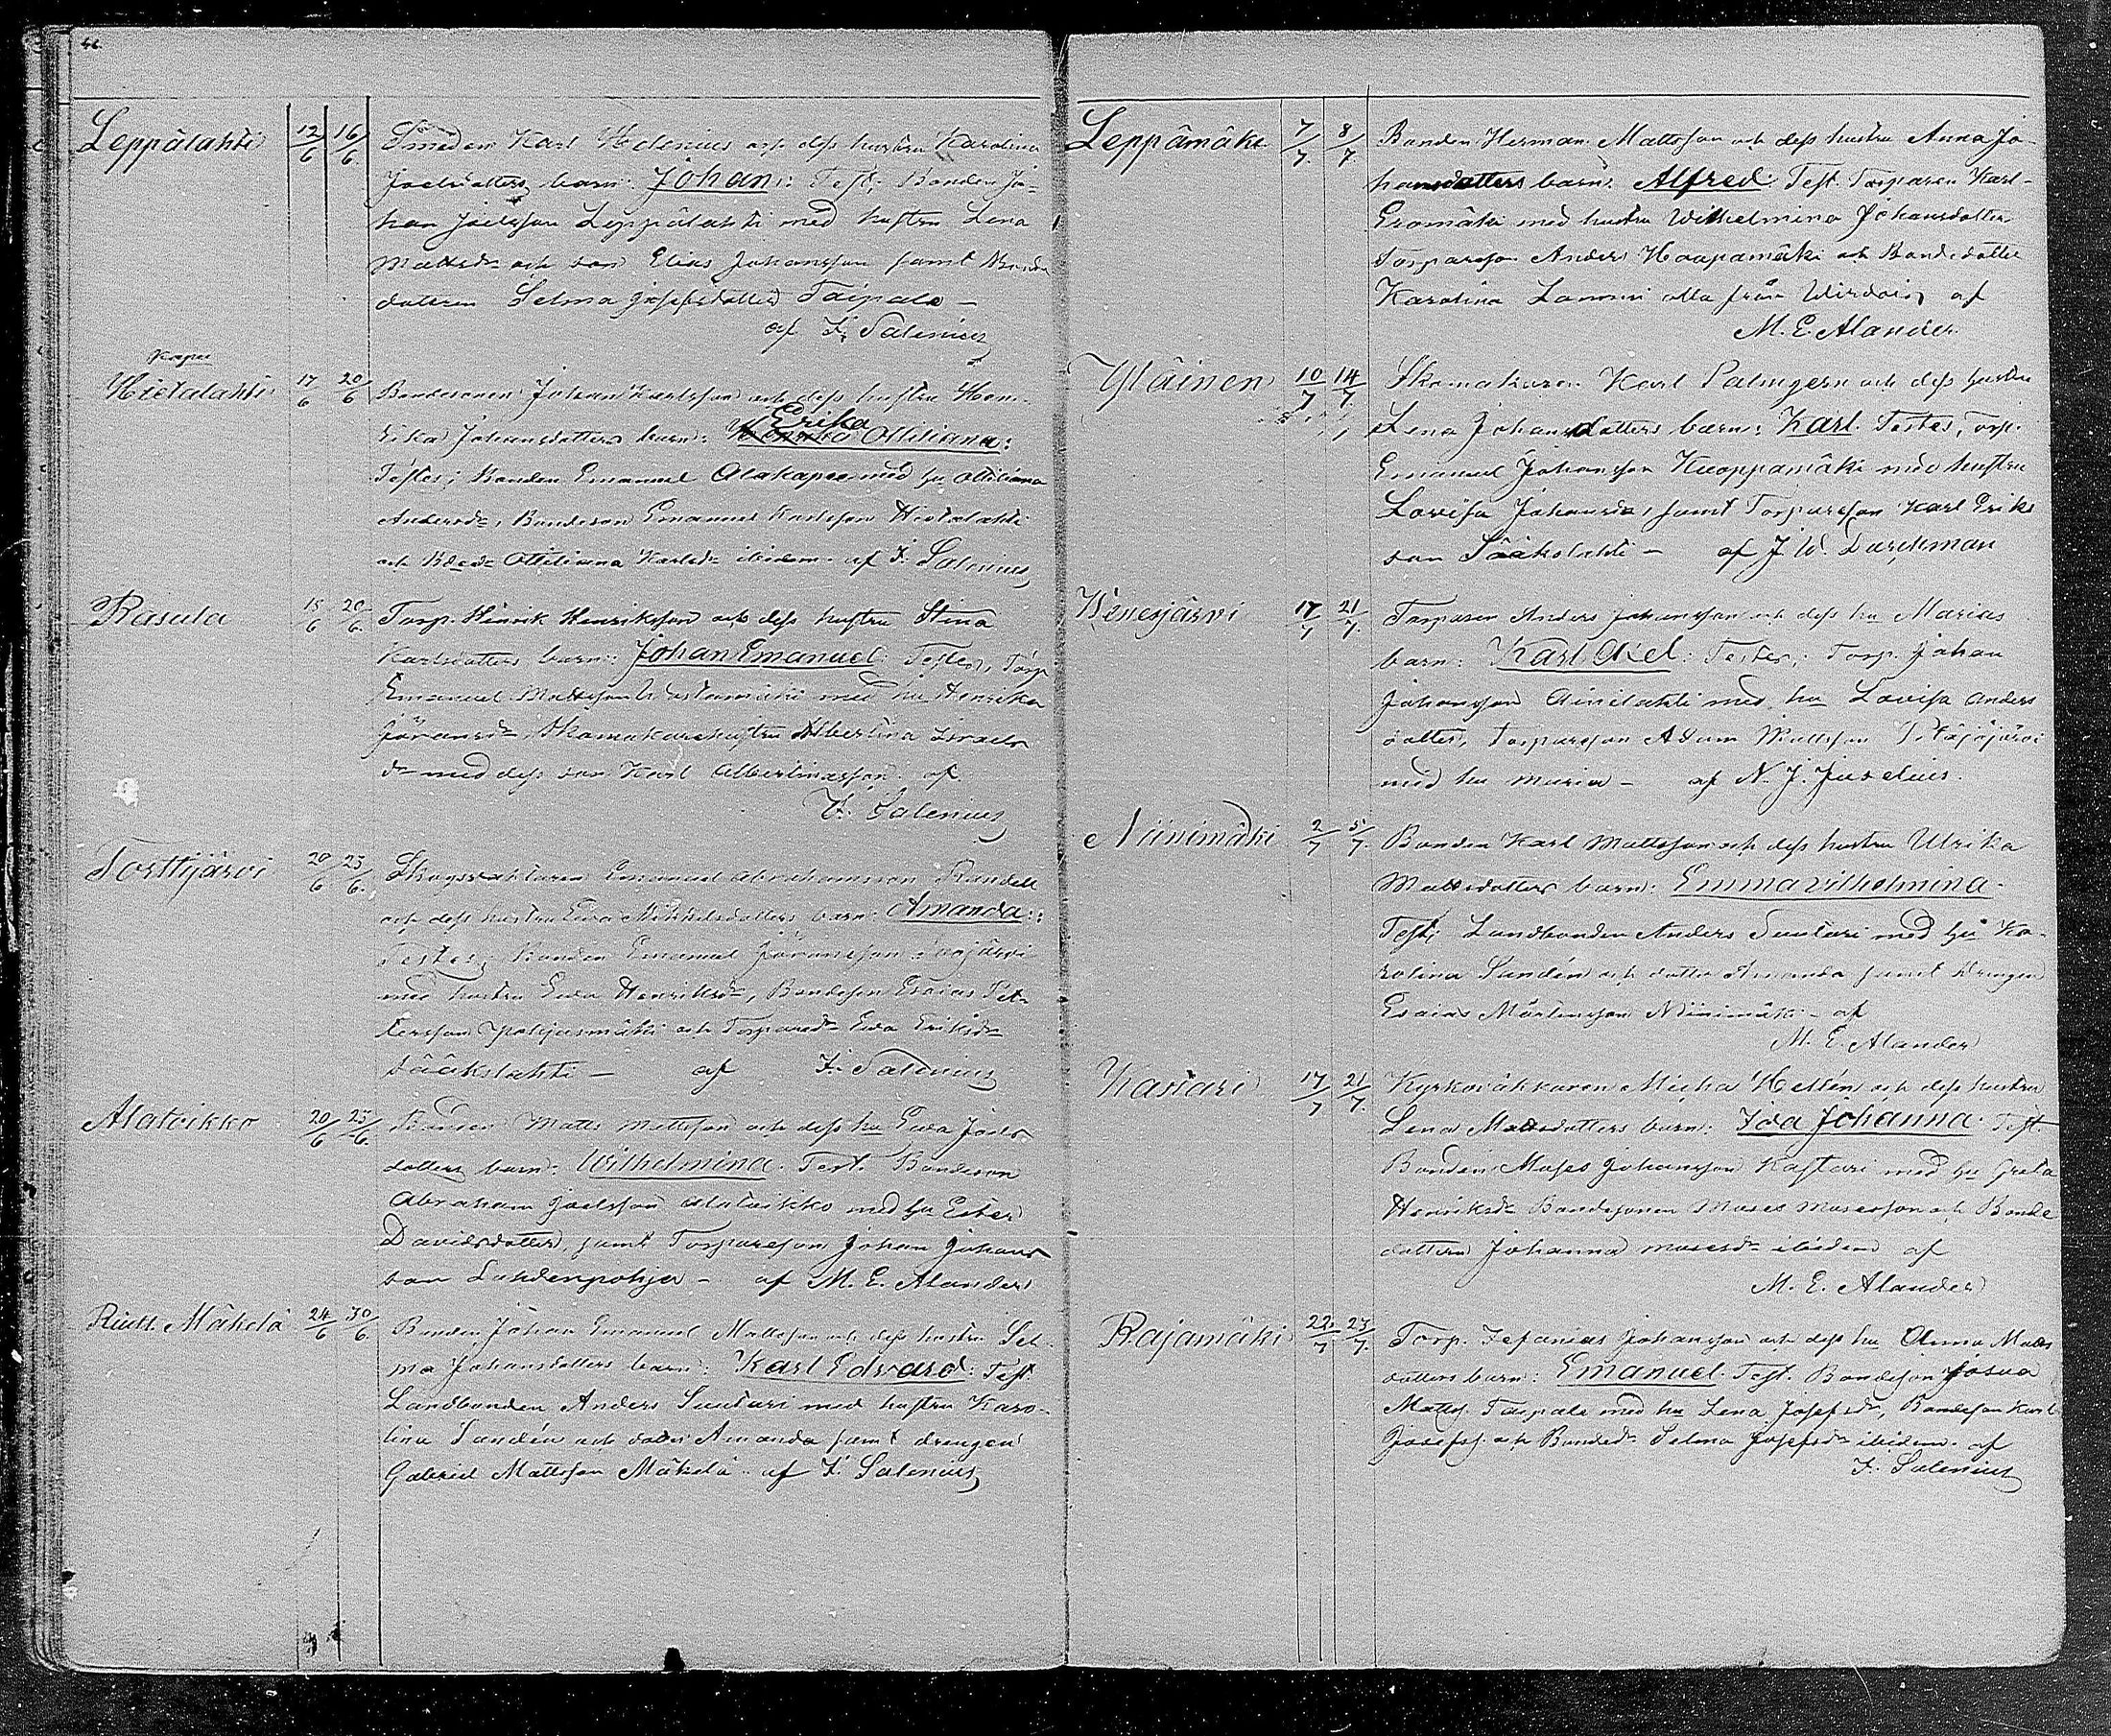 Leppälahti 12/6 16/6. Smeden Karl Hdenius och dess hustru Karolina
Joelsdotters barn: Johan: Test: Bonden Jo-
han Joelsson Leppälahti med hustru Lena
Mattsdr och son Elias Johansson samt Bonde
dottren Selma Josefsdotter Taipale –
af F. Salenius
Kapee
Hietalahti 17/6 20/6 Bondesonen Johan Karlsson och dess hustru Hen-
Erika
rika Johansdotters barn: Henrika Ottiliana:
Testes; Bonden Emanuel Alakapee med hu Ottiliana
Andersdr, Bondeson Emanuel Karlsson Hietalahti
och Ottiliana Karlsdr ibidem. af F. Salenius
Rasula 15/6 20/6. Torp. Henrik Henriksson och dess hustru Stina
Karlsdotters barn: Johan Emanuel: Testes, Torp
Emanuel Mattsson med hu Henrika
Göransdr, Skomakarehustru Albertina Israels
dr med dess son Karl Albertinasson. af
F. Salenius
Torttijärvi 20/6 23/6. Skogsvaktaren Emanuel Abrahamsson Randell
och dess hustru Eva Mikkelsdotters barn: Amanda:
Testes; Bonden Emanuel Göransson
med hustru Eva Henriksdr, Bondeson Esaias Pet-
tersson Pohjasmäki och Torparedr Eva Eriksdr
Sääkslahti – af F. Salenius
Alatoikko 20/6 23/6. Bonden Matts Mattsson och dess hu Eva Joels
dotters barn: Wilhelmina. Test. Bondeson
Abraham Joelsson Alatoikko med hu Ester
Davidsdotter, samt Torpareson Johan Johans
son Lahdenpohja – af M. E. Alander
Riutt. Mäkelä 24/6 30/6. Bonden Johan Emanuel Mattsson och dess hustru Sel-
ma Johansdotters barn: Karl Edvard: Test.
Landbonden Anders Suutari med hustru Karo-
lina Sandén och dotter Amanda samt drengen
Gabriel Mattsson Mäkelä. af F. Salenius
Leppämäki 7/7. 8/7. Bonden Herman Mattsson och dess hustru Anna Jo-
hansdotters barn: Alfred: Test. Torparen Karl
Eromäki med hustru Wilhelmina Johansdotter
Torpareson Anders Haapamäki och Bondedotter
Karolina Lammi alla från Wirdois, af
M. E. Alander
Yläinen 10/7 14/7 Skomakaren Karl Palmgern och dess hustru
Lena Johansdotters barn: Karl. Testes, torp.
Emanuel Johansson Kuoppamäki med hustru
Lovisa Johansdr, samt Torpareson Karl Eriks
son Sääkslahti – af J. W. Durchman
Wenesjärvi 17/7 21/7. Torparen Anders Johansson och dess hu Marias
barn: Karl Axel: Testes; Torp. Johan
Johansson Ainelahti med hu Lovisa Anders
dotter, Torpareson Adam Mattsson
med hu Maria – af N. J. Juselius.
Niinimäki 2/7 5/7. Bonden Karl Mattsson och dess hustru Ulrika
Mattsdotters barn: Emma vilhelmina.
Test; Landbonden Anders Suutari med hu Ka-
rolina Sandén och dotter Amanda samt drengen
Esaias Mårtensson Niinimäki – af
M. E. Alander
Kastari 17/7 21/7. Kyrkoväktaren Micha Hellén och dess hustru
Lena Mattsdotters barn: Ida Johanna. Test.
Bonden Moses Johansson Kastari med hu Greta
Henriksdr Bondesonen Moses Mosesson och Bonde
dottren Johanna Mosesdr ibidem af
M. E. Alander
Rajamäki 22/7 23/7. Torp. Zefanias Johansson och dess hu Anna Matts
dotters barn: Emanuel. Test. Bondeson Josua
Matts. Taipale med hu Lena Josefsdr, Bondeson Karl
Josefss. och Bondedr Selma Josefsdr ibidem. af
F. Salenius